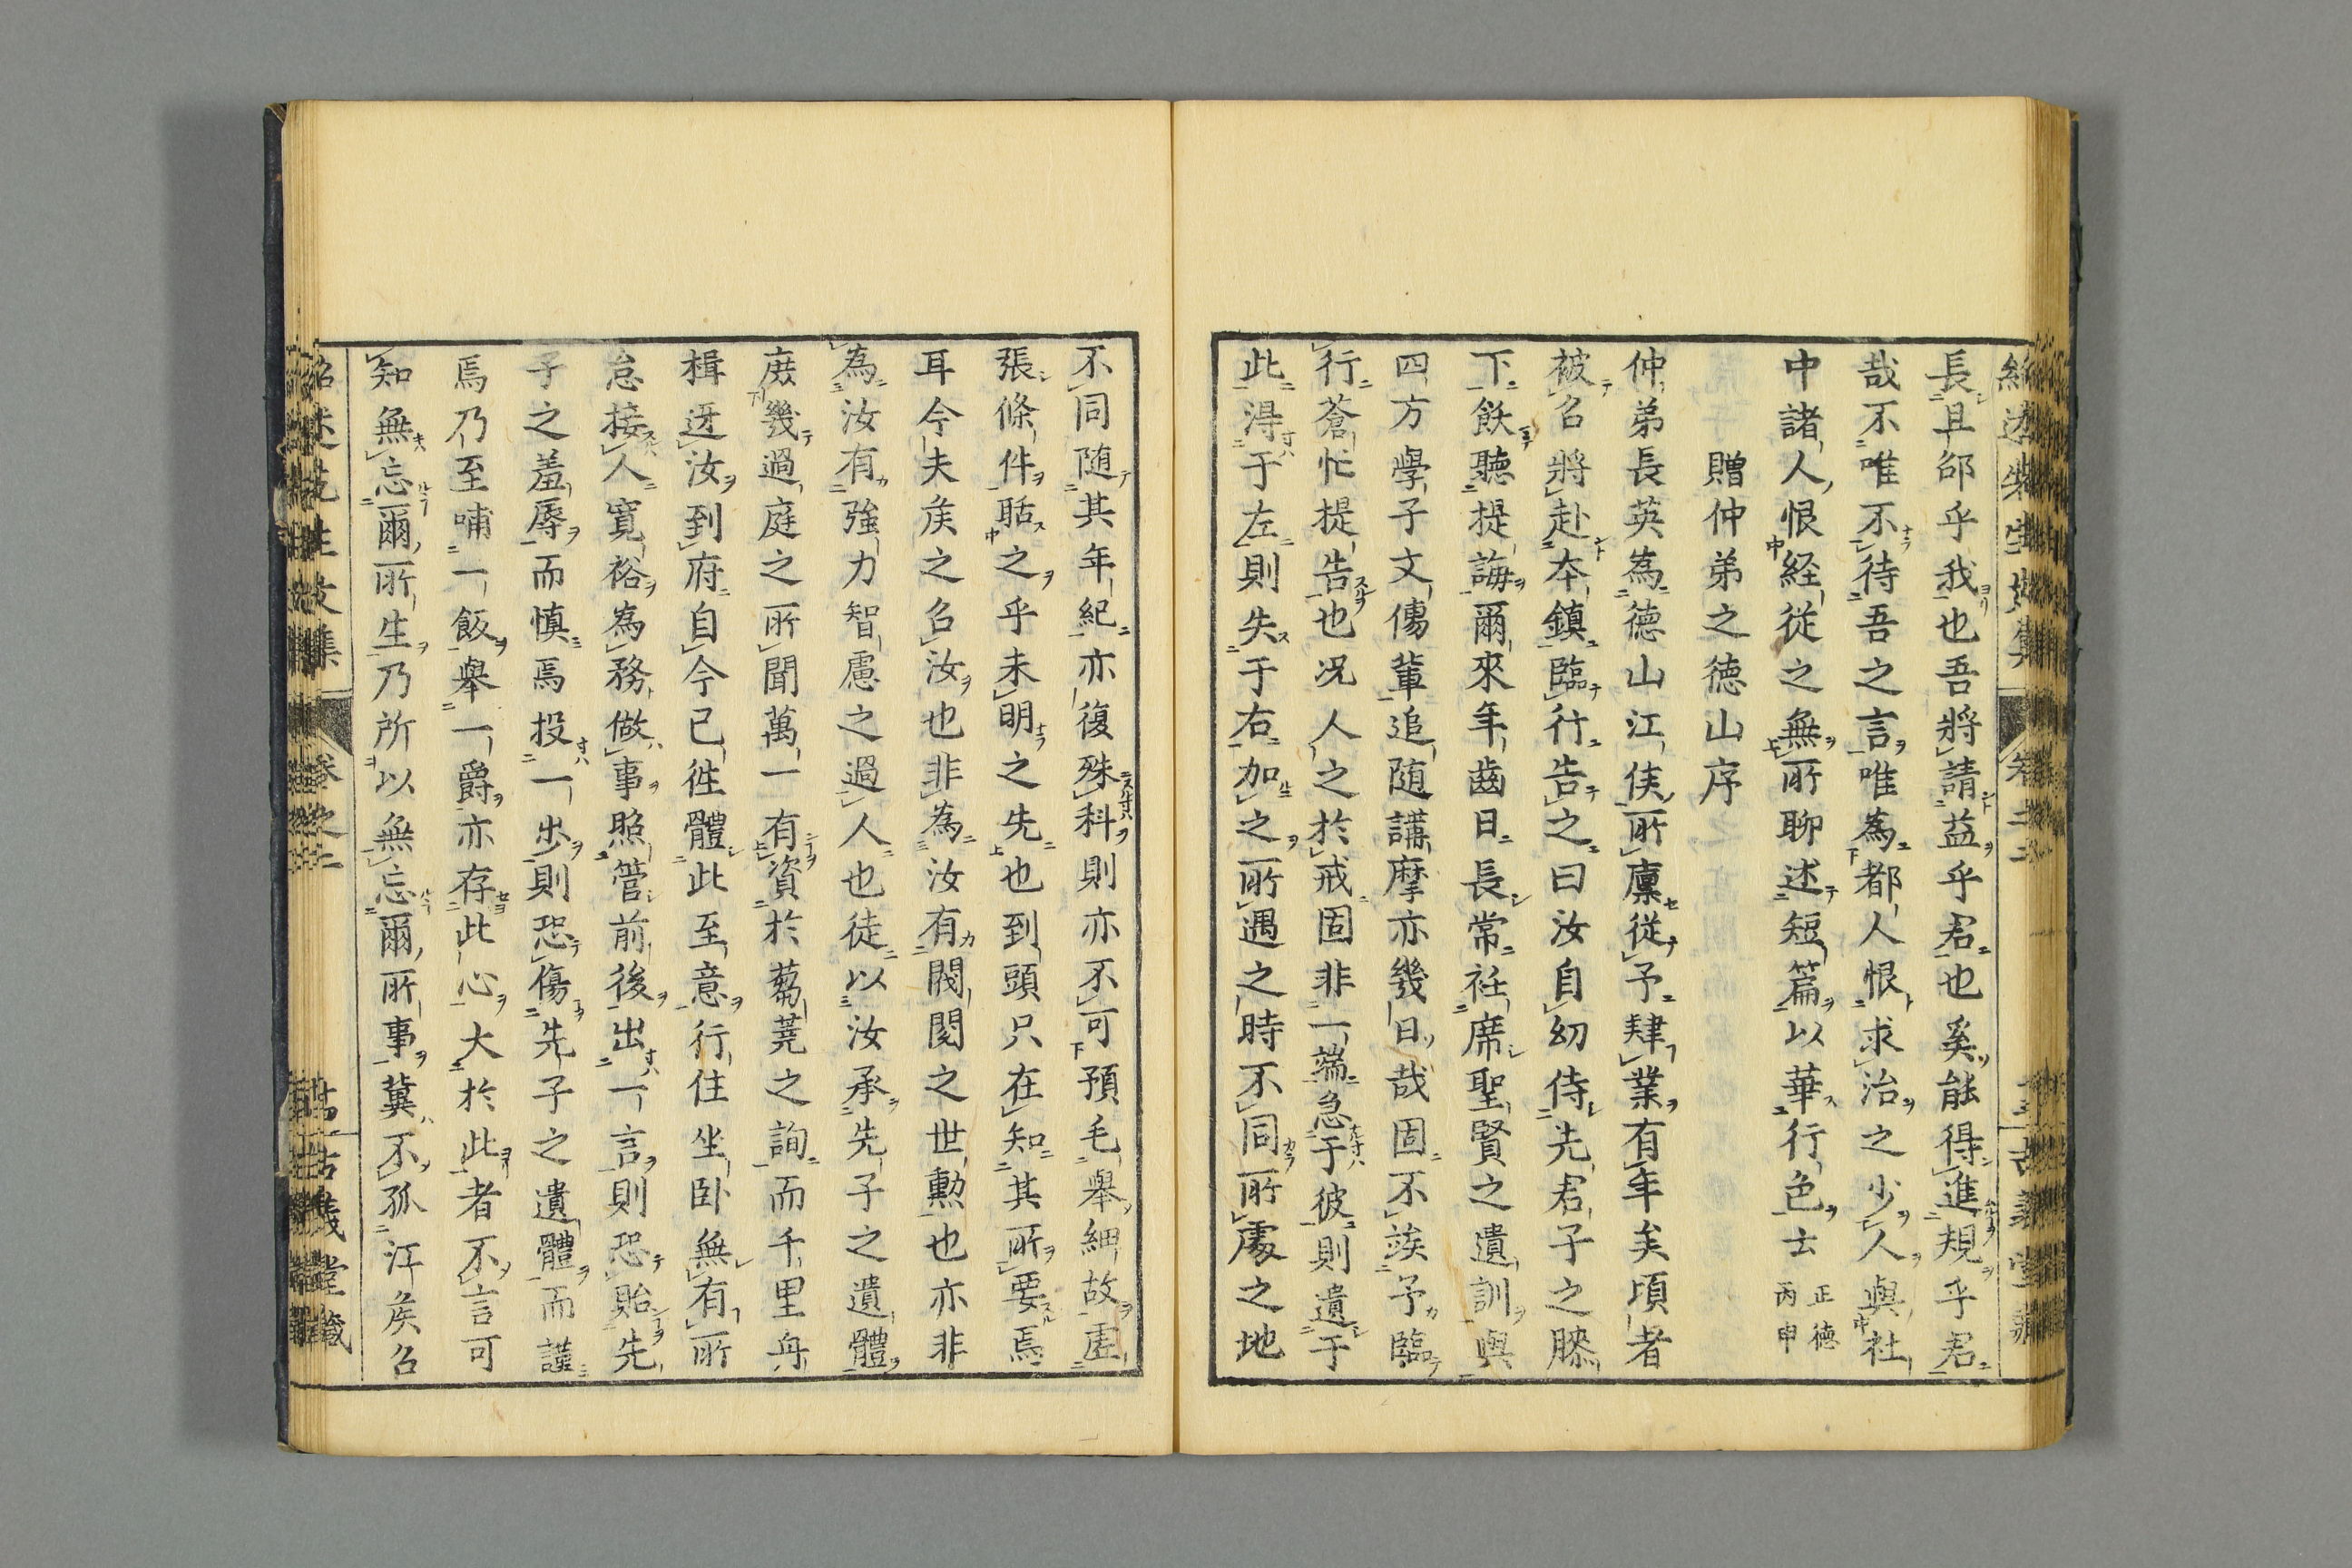 長且邵乎我也吾將請益乎君也奚能得進規乎君
哉不唯不待吾之言唯為都人恨求治之少人與社
中諸人恨経從之無所聊述短篇以華行色云 正德丙申
贈仲弟之德山序
仲弟長英為德山江侯所廩從予肄業有年矣頃者
被召將赴本鎮臨行告之曰汝自幼侍先君子之膝
下飫聽提誨爾來年齒日長常在席聖賢之遺訓與
四方學子文儔輩追随講摩亦幾日哉固不竢予臨
行蒼忙提告也况人之於戒固非一端急于彼則遺于
此得于左則失于右加之所遇之時不同所處之地
不同随其年紀亦復殊科則亦不可預毛舉細故虛
張條件聒之乎未明之先也到頭只在知其所要焉
耳今夫矦之召汝也非為汝有閥閱之世勲也亦非
為汝有強力智慮之過人也徒以汝承先子之遺體
庻幾過庭之所聞萬一有資於蒭蕘之詢而千里舟
楫迓汝到府自今已徃體此至意行住坐卧無有所
怠接人寬裕為務做事照管前後出一言則恐貽先
子之羞辱而慎焉投一步則恐傷先子之遺體而謹
焉乃至哺一飯舉一爵亦存此心大於此者不言可
知無忘爾所生乃所以無忘爾所事冀不孤江矦召
卷之二
古義堂藏